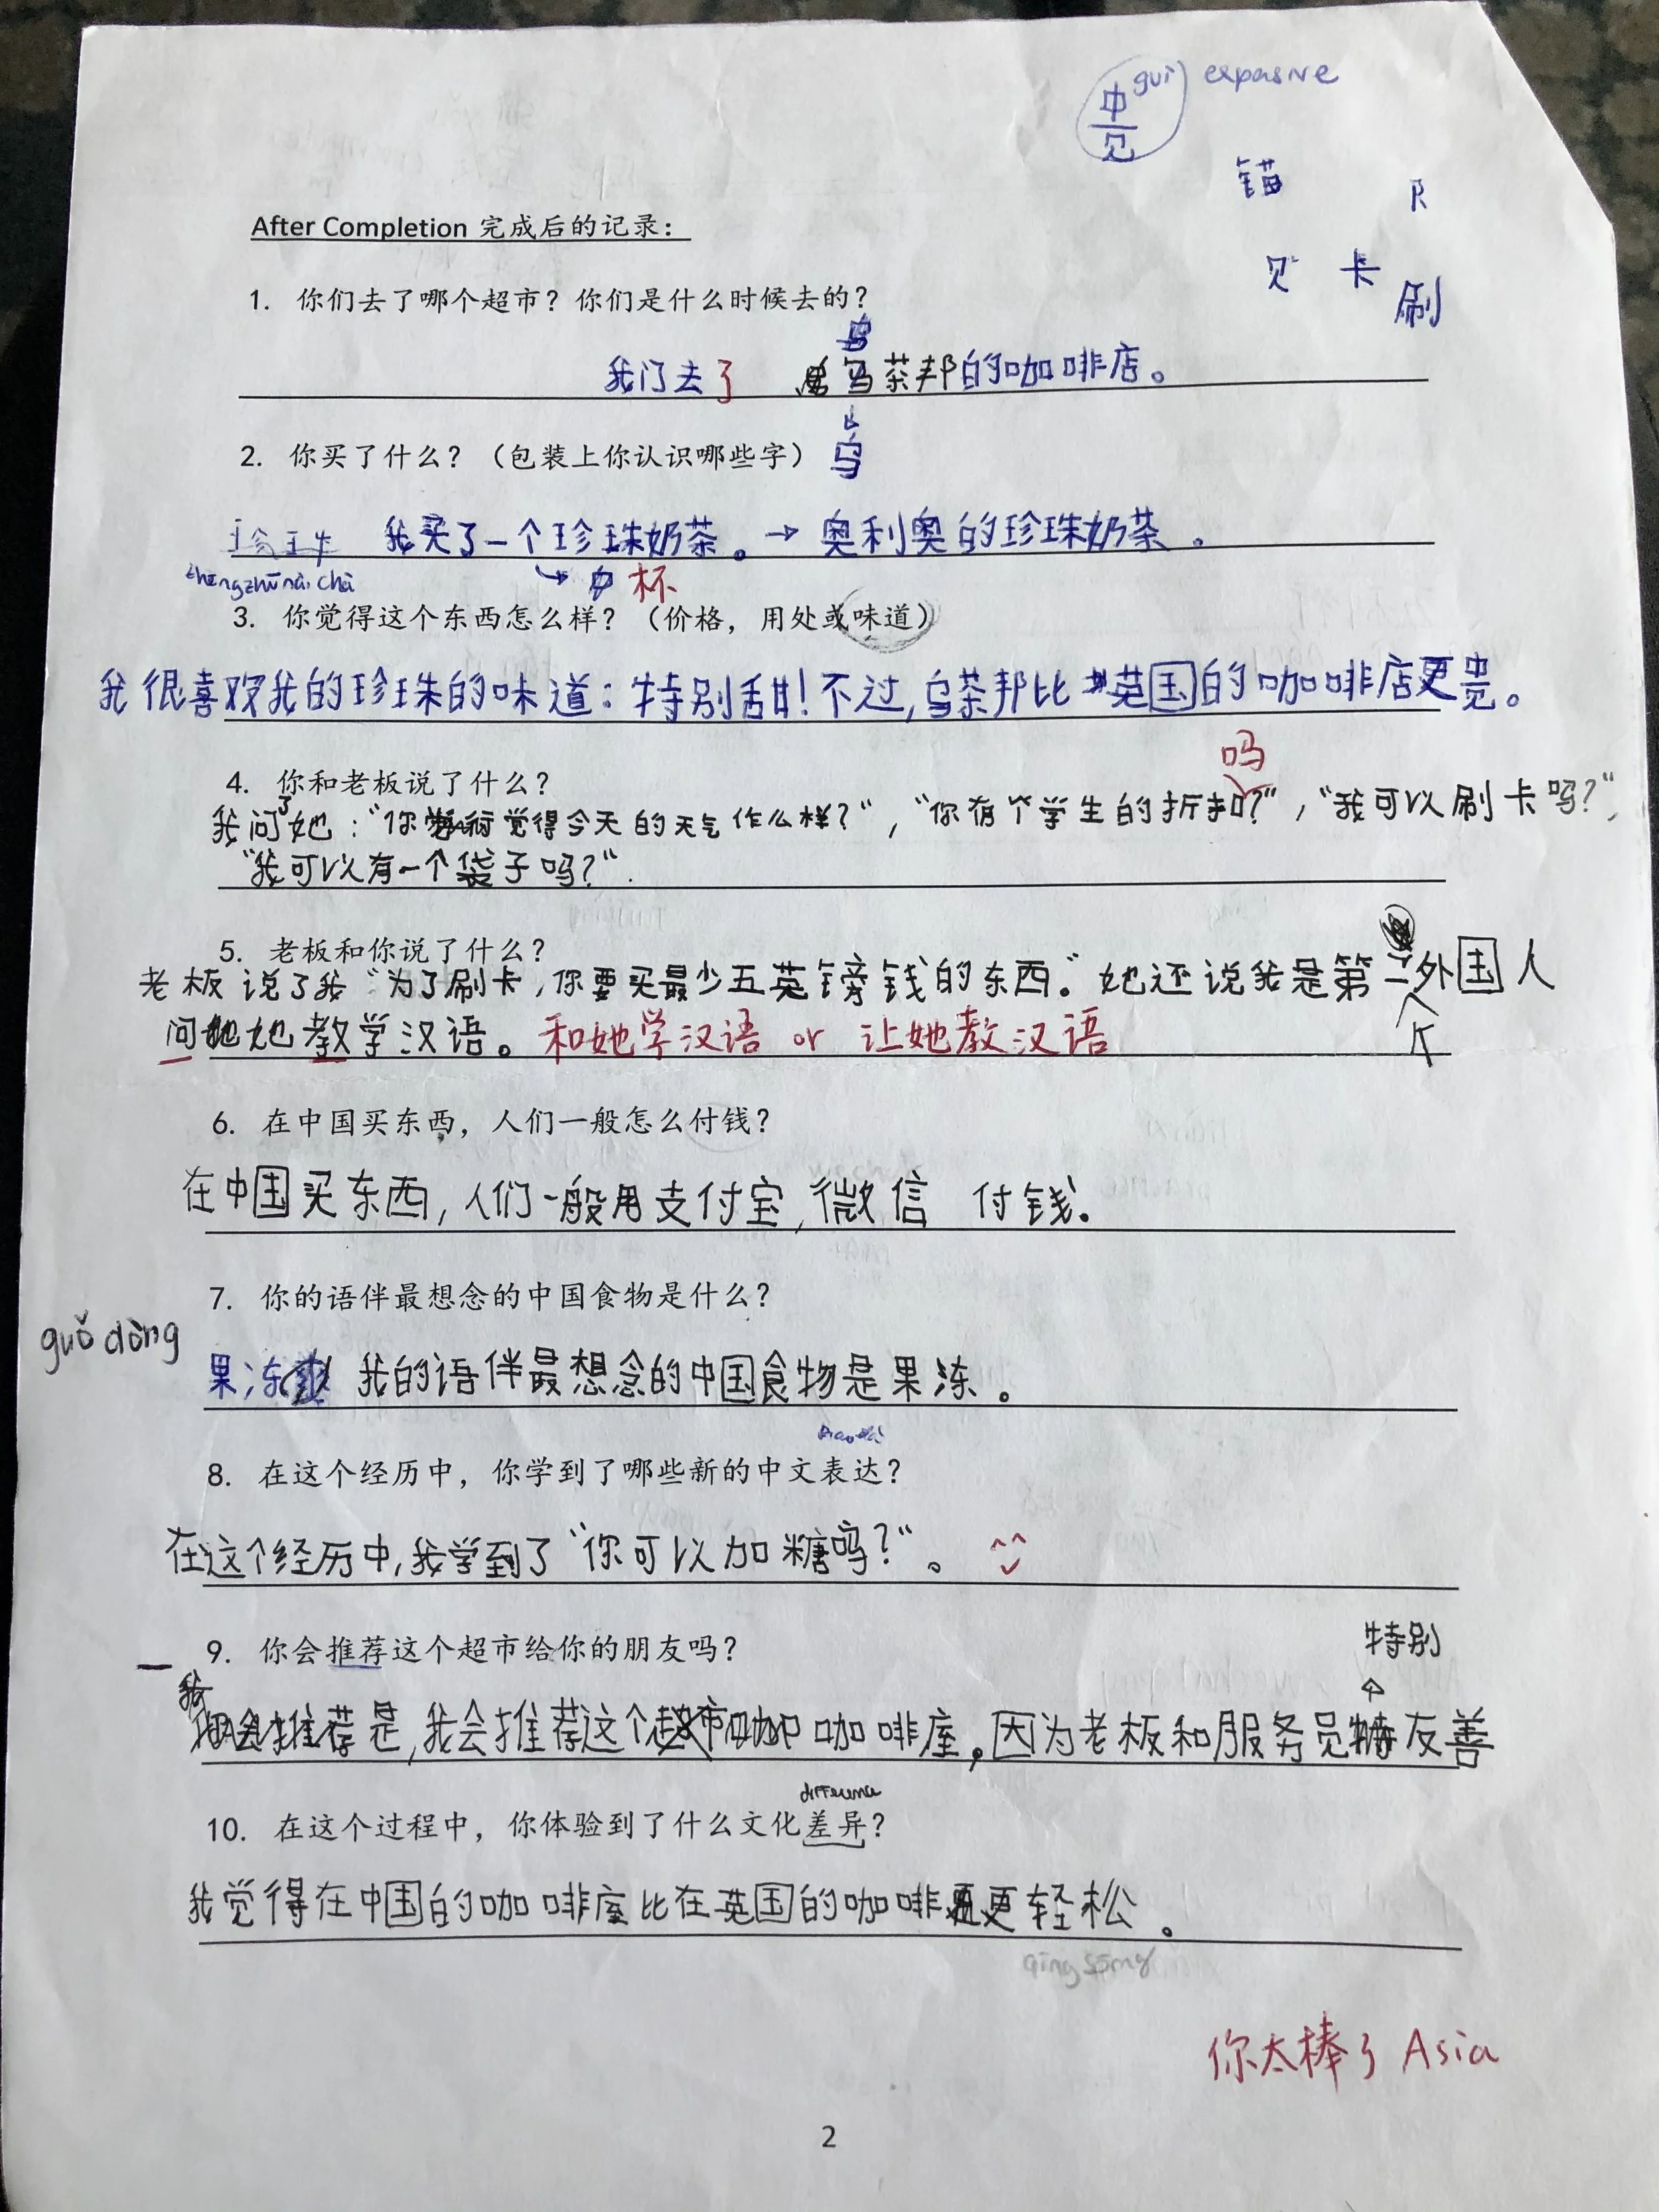 guì expensive
卡
刷
After Completion 完成后的记录：
1. 你们去了哪个超市？你们是什么时候去的？
我门去了 乌茶邦的咖啡店。
2. 你买了什么？（包装上你认识哪些字） 乌
我买了一个珍珠奶茶。→ 奥利奥的珍珠奶茶。
zhēngzhūnǎi chà 杯
3. 你觉得这个东西怎么样？（价格，用处或味道）
我很喜欢我的珍珠的味道：特别甜！不过，乌茶邦比英国的咖啡店更贵。
吗
4. 你和老板说了什么？
我问了她：“你觉得今天的天气作么样？”，“你有个学生的折扣？”，“我可以刷卡吗？”，
“我可以有一个袋子吗？”.
5. 老板和你说了什么？
老板说了我“为了刷卡，你要买最少五英镑钱的东西。”她还说我是第一个外国人
问她教学汉语。和她学汉语 or 让她教汉语
6. 在中国买东西，人们一般怎么付钱？
在中国买东西，人们一般用支付宝，微信 付钱.
7. 你的语伴最想念的中国食物是什么？
guǒ dòng
果冻 我的语伴最想念的中国食物是果冻。
8. 在这个经历中，你学到了哪些新的中文表达？
在这个经历中，我学到了“你可以加糖吗？”。
9. 你会推荐这个超市给你的朋友吗？
特别
是，我会推荐这个咖啡屋，因为老板和服务员友善
difference
10. 在这个过程中，你体验到了什么文化差异？
我觉得在中国的咖啡屋比在英国的咖啡更轻松。
qīng sōng
你太棒了 Asia
2